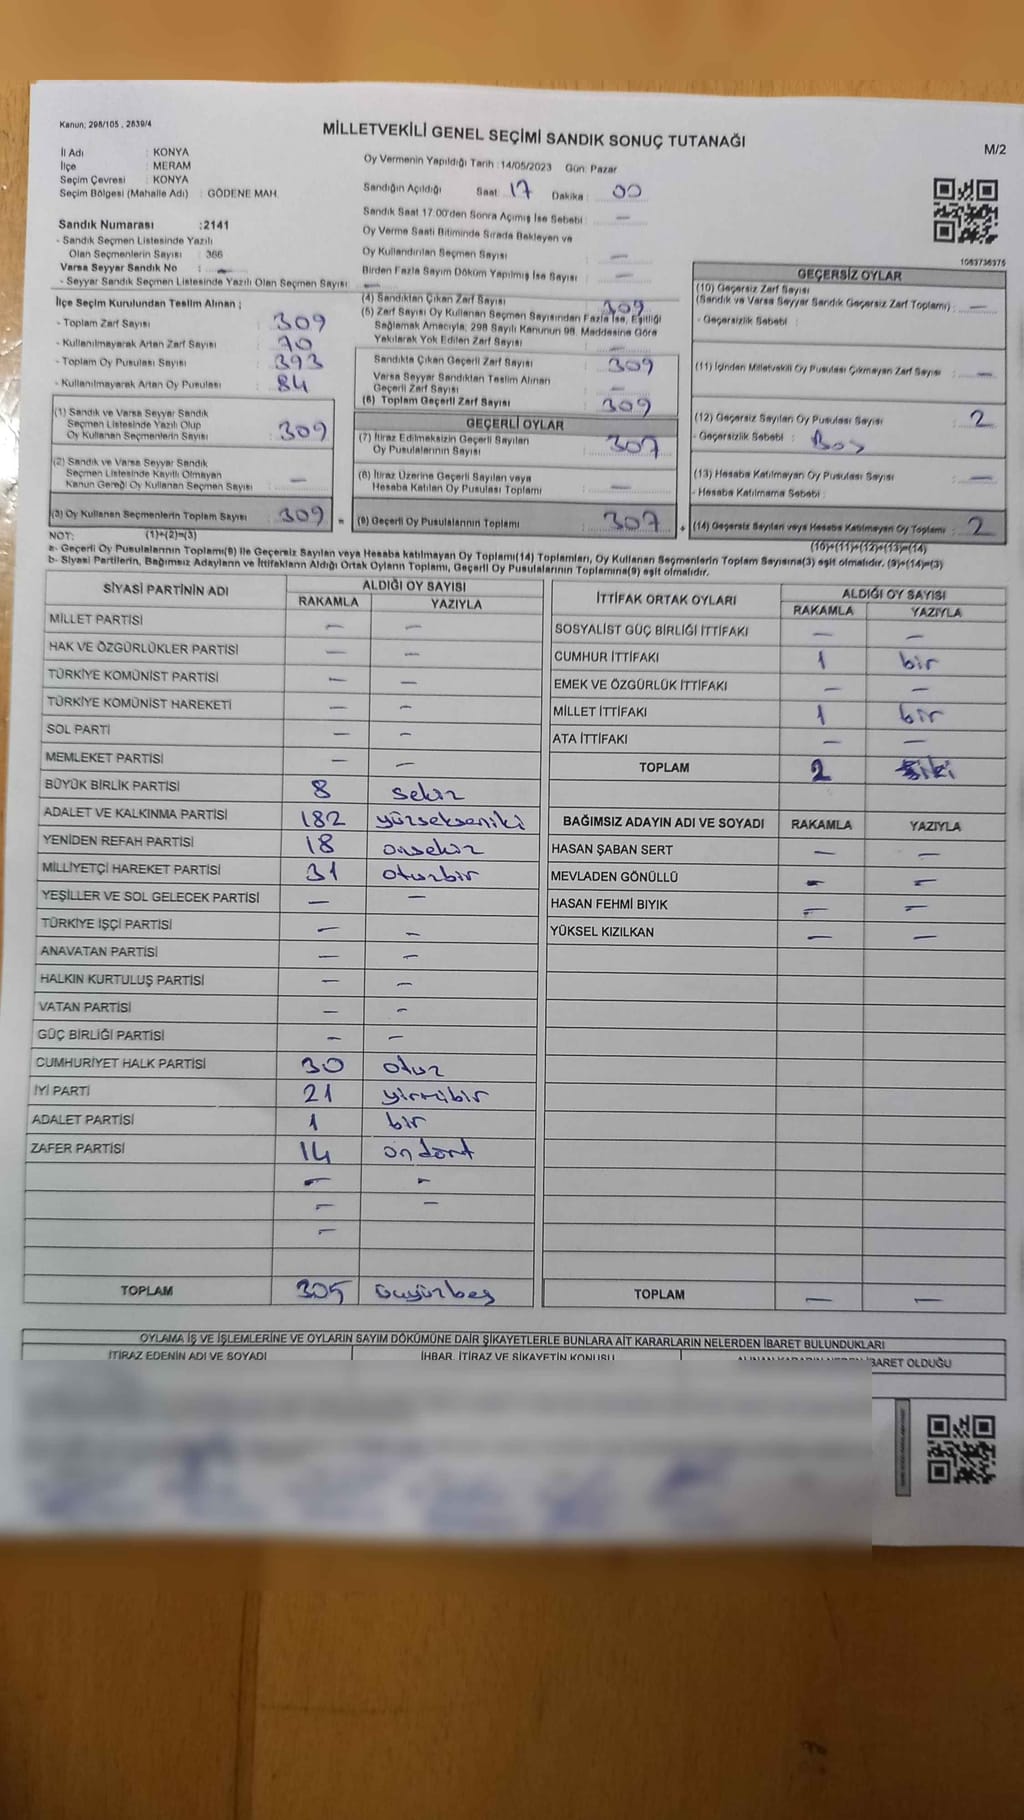 Kanun; 298/105 , 2839/4
MİLLETVEKİLİ GENEL SEÇİMİ SANDIK SONUÇ TUTANAĞI
M/2
İl Adı : KONYA
İlçe : MERAM
Seçim Çevresi : KONYA
Seçim Bölgesi (Mahalle Adı) : GÖDENE MAH.
Oy Vermenin Yapıldığı Tarih : 14/05/2023 Gün: Pazar
Sandığın Açıldığı Saat: 17 Dakika : 00
Sandık Saat 17:00'den Sonra Açılmış İse Sebebi : —
Oy Verme Saati Bitiminde Sırada Bekleyen ve
Oy Kullandırılan Seçmen Sayısı : —
Birden Fazla Sayım Döküm Yapılmış İse Sayısı : —
1063736375
Sandık Numarası :2141
- Sandık Seçmen Listesinde Yazılı
Olan Seçmenlerin Sayısı : 366
Varsa Seyyar Sandık No : —
- Seyyar Sandık Seçmen Listesinde Yazılı Olan Seçmen Sayısı : —
İlçe Seçim Kurulundan Teslim Alınan ;
- Toplam Zarf Sayısı : 309
- Kullanılmayarak Artan Zarf Sayısı : 70
- Toplam Oy Pusulası Sayısı : 393
- Kullanılmayarak Artan Oy Pusulası : 84
(1) Sandık ve Varsa Seyyar Sandık
Seçmen Listesinde Yazılı Olup
Oy Kullanan Seçmenlerin Sayısı : 309
(2) Sandık ve Varsa Seyyar Sandık
Seçmen Listesinde Kayıtlı Olmayan
Kanun Gereği Oy Kullanan Seçmen Sayısı : —
(3) Oy Kullanan Seçmenlerin Toplam Sayısı : 309 =
(4) Sandıktan Çıkan Zarf Sayısı : 309
(5) Zarf Sayısı Oy Kullanan Seçmen Sayısından Fazla İse, Eşitliği
Sağlamak Amacıyla, 298 Sayılı Kanunun 98. Maddesine Göre
Yakılarak Yok Edilen Zarf Sayısı : —
Sandıkta Çıkan Geçerli Zarf Sayısı : 309
Varsa Seyyar Sandıktan Teslim Alınan
Geçerli Zarf Sayısı : —
(6) Toplam Geçerli Zarf Sayısı : 309
GEÇERLİ OYLAR
(7) İtiraz Edilmeksizin Geçerli Sayılan
Oy Pusulalarının Sayısı : 307
(8) İtiraz Üzerine Geçerli Sayılan veya
Hesaba Katılan Oy Pusulası Toplamı : —
(9) Geçerli Oy Pusulalarının Toplamı : 307 +
GEÇERSİZ OYLAR
(10) Geçersiz Zarf Sayısı
(Sandık ve Varsa Seyyar Sandık Geçersiz Zarf Toplamı) : —
- Geçersizlik Sebebi :
(11) İçinden Milletvekili Oy Pusulası Çıkmayan Zarf Sayısı : —
(12) Geçersiz Sayılan Oy Pusulası Sayısı : 2
- Geçersizlik Sebebi : Boş
(13) Hesaba Katılmayan Oy Pusulası Sayısı : —
- Hesaba Katılmama Sebebi :
(14) Geçersiz Sayılan veya Hesaba Katılmayan Oy Toplamı : 2
NOT: (1)+(2)=(3)
(10)+(11)+(12)+(13)=(14)
a- Geçerli Oy Pusulalarının Toplamı(9) ile Geçersiz Sayılan veya Hesaba katılmayan Oy Toplamı(14) Toplamları, Oy Kullanan Seçmenlerin Toplam Sayısına(3) eşit olmalıdır. (9)+(14)=(3)
b- Siyasi Partilerin, Bağımsız Adayların ve İttifakların Aldığı Ortak Oyların Toplamı, Geçerli Oy Pusulalarının Toplamına(9) eşit olmalıdır.
SİYASİ PARTİNİN ADI ALDIĞI OY SAYISI
RAKAMLA YAZIYLA
MİLLET PARTİSİ — —
HAK VE ÖZGÜRLÜKLER PARTİSİ — —
TÜRKİYE KOMÜNİST PARTİSİ — —
TÜRKİYE KOMÜNİST HAREKETİ — —
SOL PARTİ — —
MEMLEKET PARTİSİ — —
BÜYÜK BİRLİK PARTİSİ 8 sekiz
ADALET VE KALKINMA PARTİSİ 182 yüzsekseniki
YENİDEN REFAH PARTİSİ 18 onsekiz
MİLLİYETÇİ HAREKET PARTİSİ 31 otuzbir
YEŞİLLER VE SOL GELECEK PARTİSİ — —
TÜRKİYE İŞÇİ PARTİSİ — —
ANAVATAN PARTİSİ — —
HALKIN KURTULUŞ PARTİSİ — —
VATAN PARTİSİ — —
GÜÇ BİRLİĞİ PARTİSİ — —
CUMHURİYET HALK PARTİSİ 30 otuz
İYİ PARTİ 21 yirmibir
ADALET PARTİSİ 1 bir
ZAFER PARTİSİ 14 ondört
— —
— —
—
TOPLAM 305 üçyüzbeş
İTTİFAK ORTAK OYLARI ALDIĞI OY SAYISI
RAKAMLA YAZIYLA
SOSYALİST GÜÇ BİRLİĞİ İTTİFAKI — —
CUMHUR İTTİFAKI 1 bir
EMEK VE ÖZGÜRLÜK İTTİFAKI — —
MİLLET İTTİFAKI 1 bir
ATA İTTİFAKI — —
TOPLAM 2 iki
BAĞIMSIZ ADAYIN ADI VE SOYADI RAKAMLA YAZIYLA
HASAN ŞABAN SERT — —
MEVLADEN GÖNÜLLÜ — —
HASAN FEHMİ BIYIK — —
YÜKSEL KIZILKAN — —
TOPLAM — —
OYLAMA İŞ VE İŞLEMLERİNE VE OYLARIN SAYIM DÖKÜMÜNE DAİR ŞİKAYETLERLE BUNLARA AİT KARARLARIN NELERDEN İBARET BULUNDUKLARI
İTİRAZ EDENİN ADI VE SOYADI İHBAR, İTİRAZ VE ŞİKAYETİN KONUSU ALINAN KARARIN NEDEN İBARET OLDUĞU